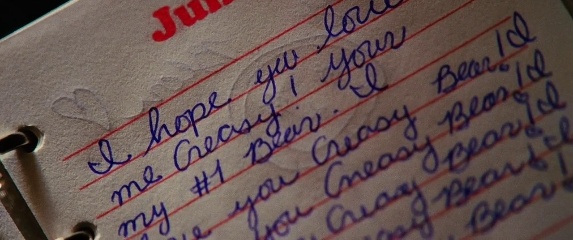 Jun
I hope you love
me Creasy! your
my #1 Bear. I
you Creasy Bear Id
you Creasy Bear Id
Creasy Bear Id
Bear